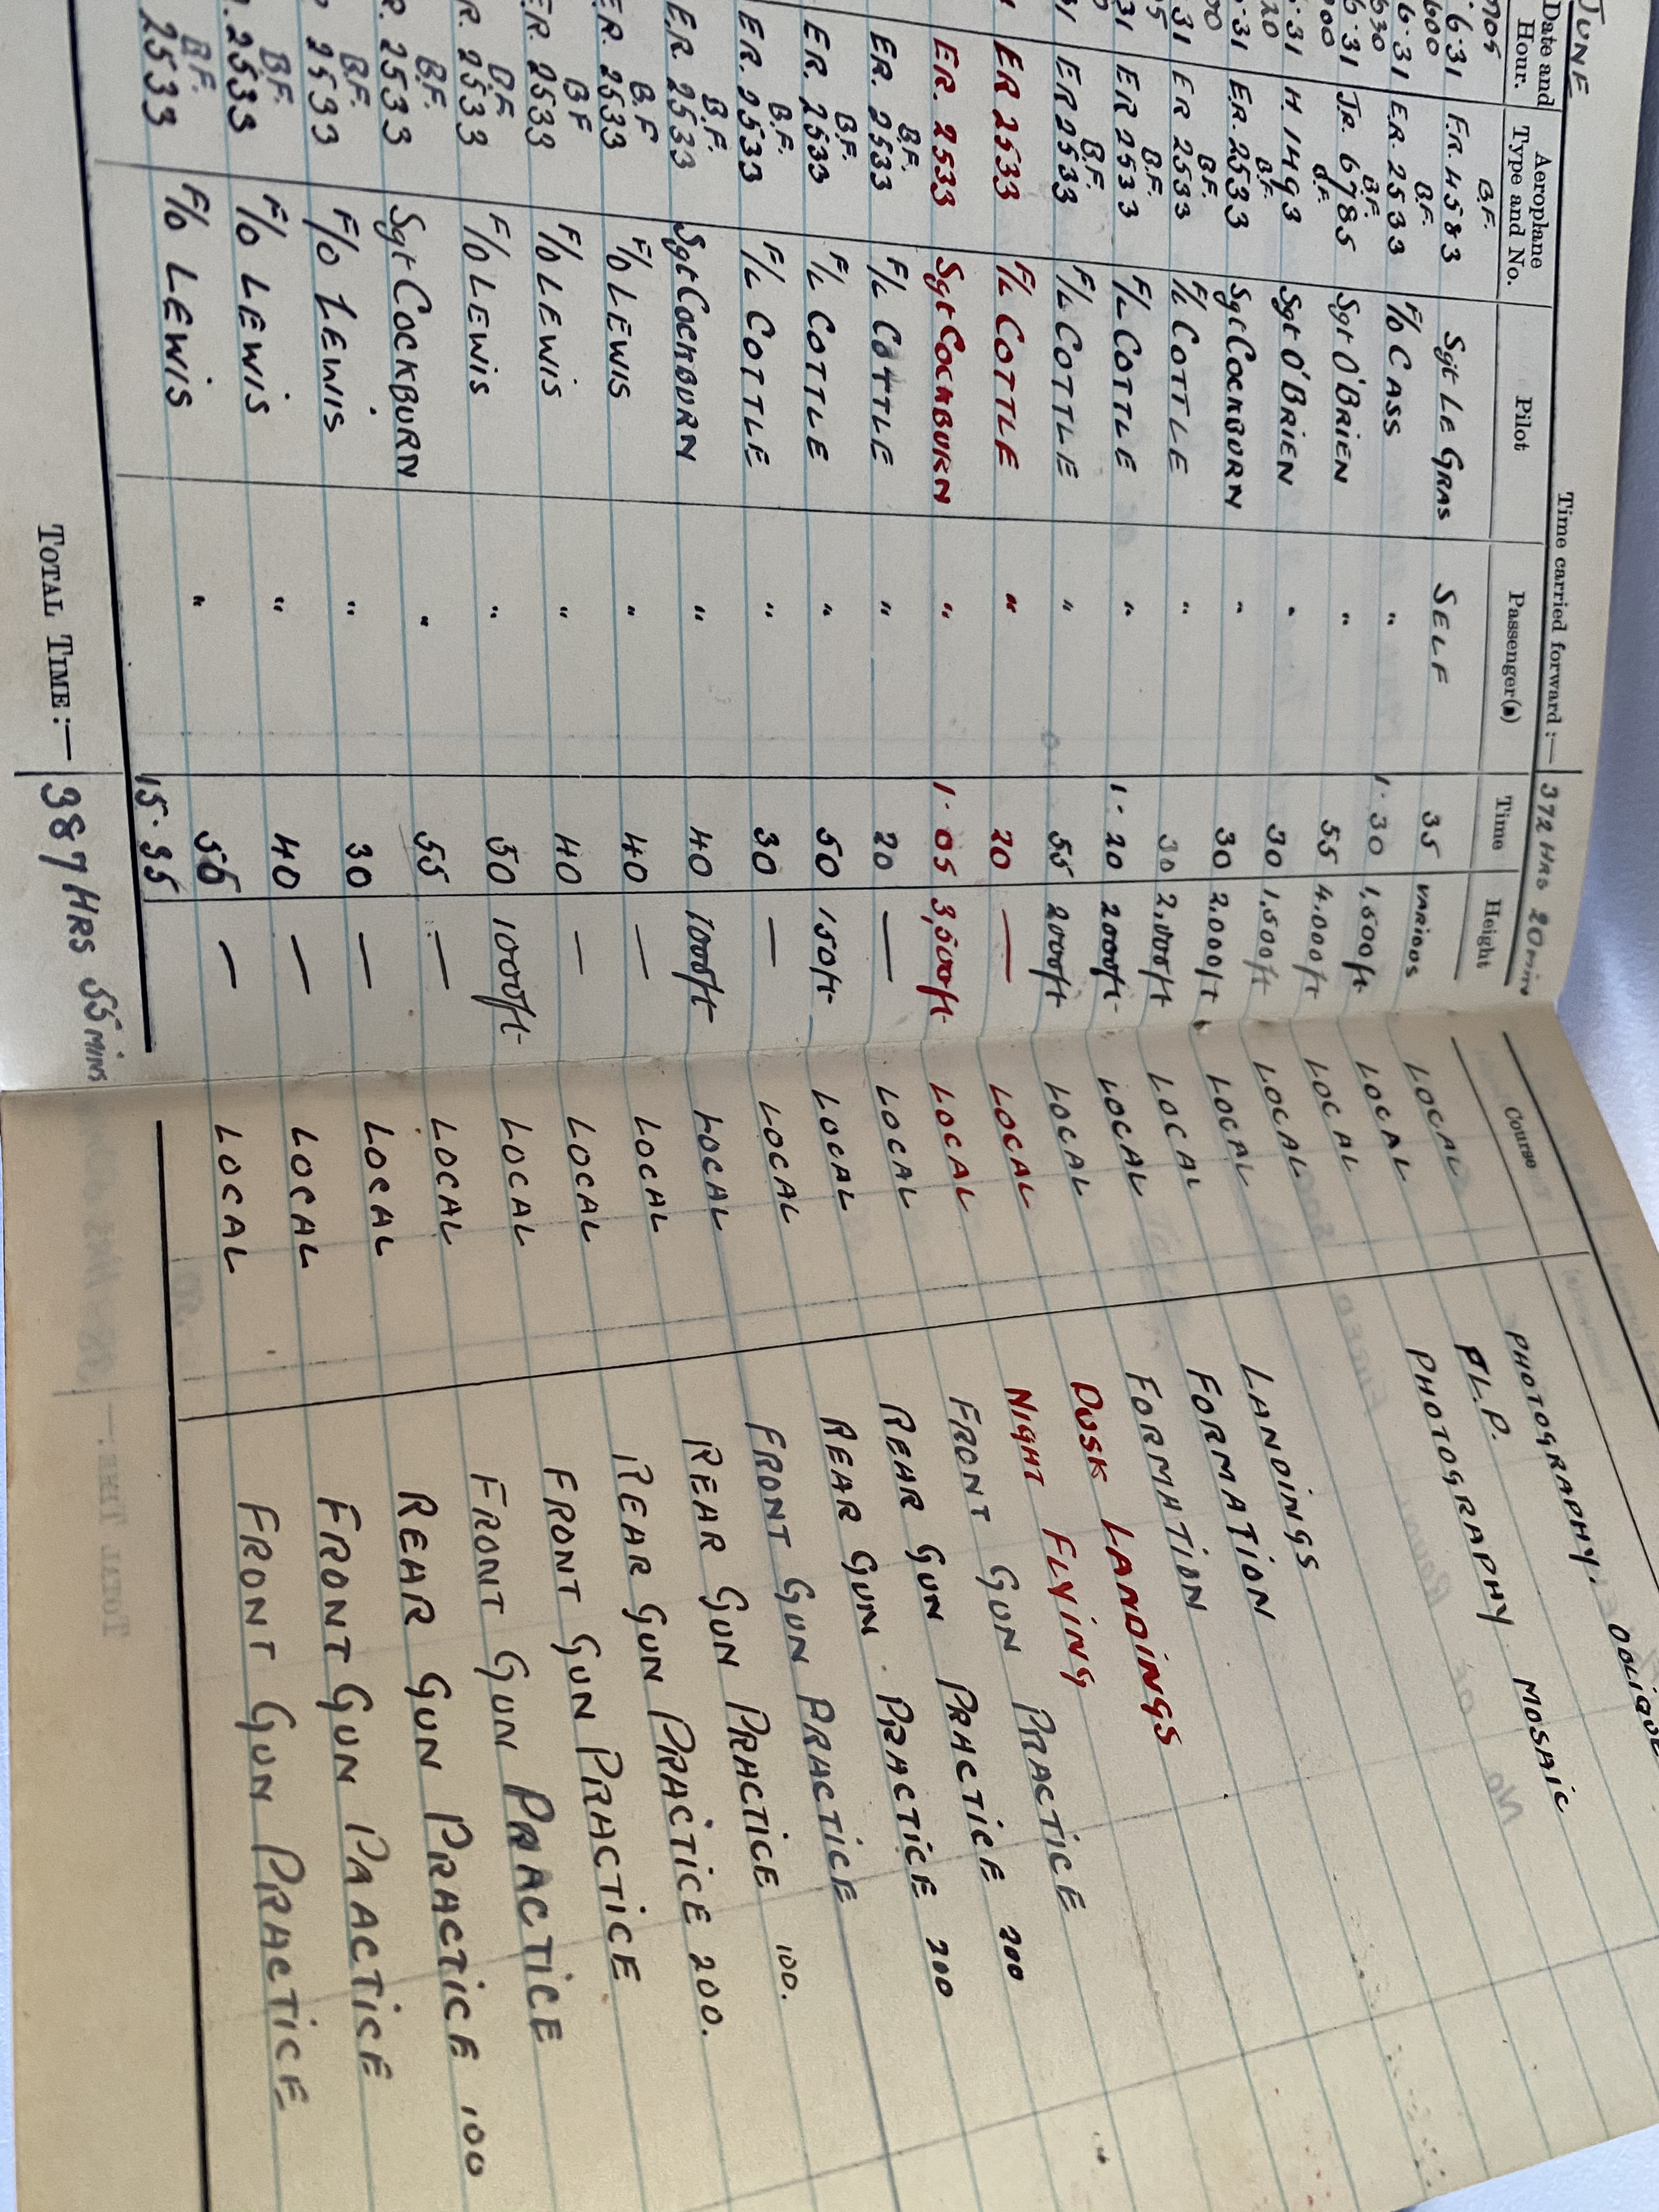 JUNE Time carried forward :— 372 HRS 20 mins
Date and Hour. Aeroplane Type and No. Pilot Passenger(s) Time Height Course
B.F.
6·31 FR. 4583 Sgt LE GRAS SELF 35 VARIOUS LOCAL PHOTOGRAPHY.
B.F.
6·31 ER. 2533 F/O CASS " 1·30 1,500ft LOCAL P.L.P.
B.F.
6·31 JR. 6785 Sgt O'BRIEN " 55 4.000ft LOCAL PHOTOGRAPHY MOSAIC
B.F.
·31 H 1493 Sgt O'BRIEN " 30 1,500ft LOCAL
B.F.
·31 ER. 2533 Sgt COCKBURN " 30 2.000ft LOCAL LANDINGS
B.F.
31 ER 2533 F/L COTTLE " 30 2,000ft LOCAL FORMATION
B.F.
31 ER 2533 F/L COTTLE " 1·20 2000ft LOCAL FORMATION
B.F.
31 ER 2533 F/L COTTLE " 55 2000ft LOCAL
ER 2533 F/L COTTLE " 20 — LOCAL DUSK LANDINGS
ER. 2533 Sgt COCKBURN " 1·05 3,500ft LOCAL NIGHT FLYING
B.F.
ER. 2533 F/L COTTLE " 20 — LOCAL FRONT GUN PRACTICE
B.F.
ER. 2533 F/L COTTLE " 50 150ft LOCAL REAR GUN PRACTICE 200
B.F.
ER. 2533 F/L COTTLE " 30 — LOCAL REAR GUN PRACTICE 200
B.F.
ER. 2533 Sgt COCKBURN " 40 1000ft LOCAL FRONT GUN PRACTICE
B.F
ER. 2533 F/O LEWIS " 40 — LOCAL REAR GUN PRACTICE 100.
B.F
ER. 2533 F/O LEWIS " 40 — LOCAL REAR GUN PRACTICE 200.
B.F
R. 2533 F/O LEWIS " 50 1000ft LOCAL FRONT GUN PRACTICE
B.F.
R. 2533 Sgt COCKBURN " 55 — LOCAL FRONT GUN PRACTICE
B.F.
2533 F/O LEWIS " 30 — LOCAL REAR GUN PRACTICE 100
B.F.
2533 F/O LEWIS " 40 — LOCAL FRONT GUN PRACTICE
B.F.
2533 F/O LEWIS " 55 — LOCAL FRONT GUN PRACTICE
15·35
TOTAL TIME:— 387 HRS 55 MINS